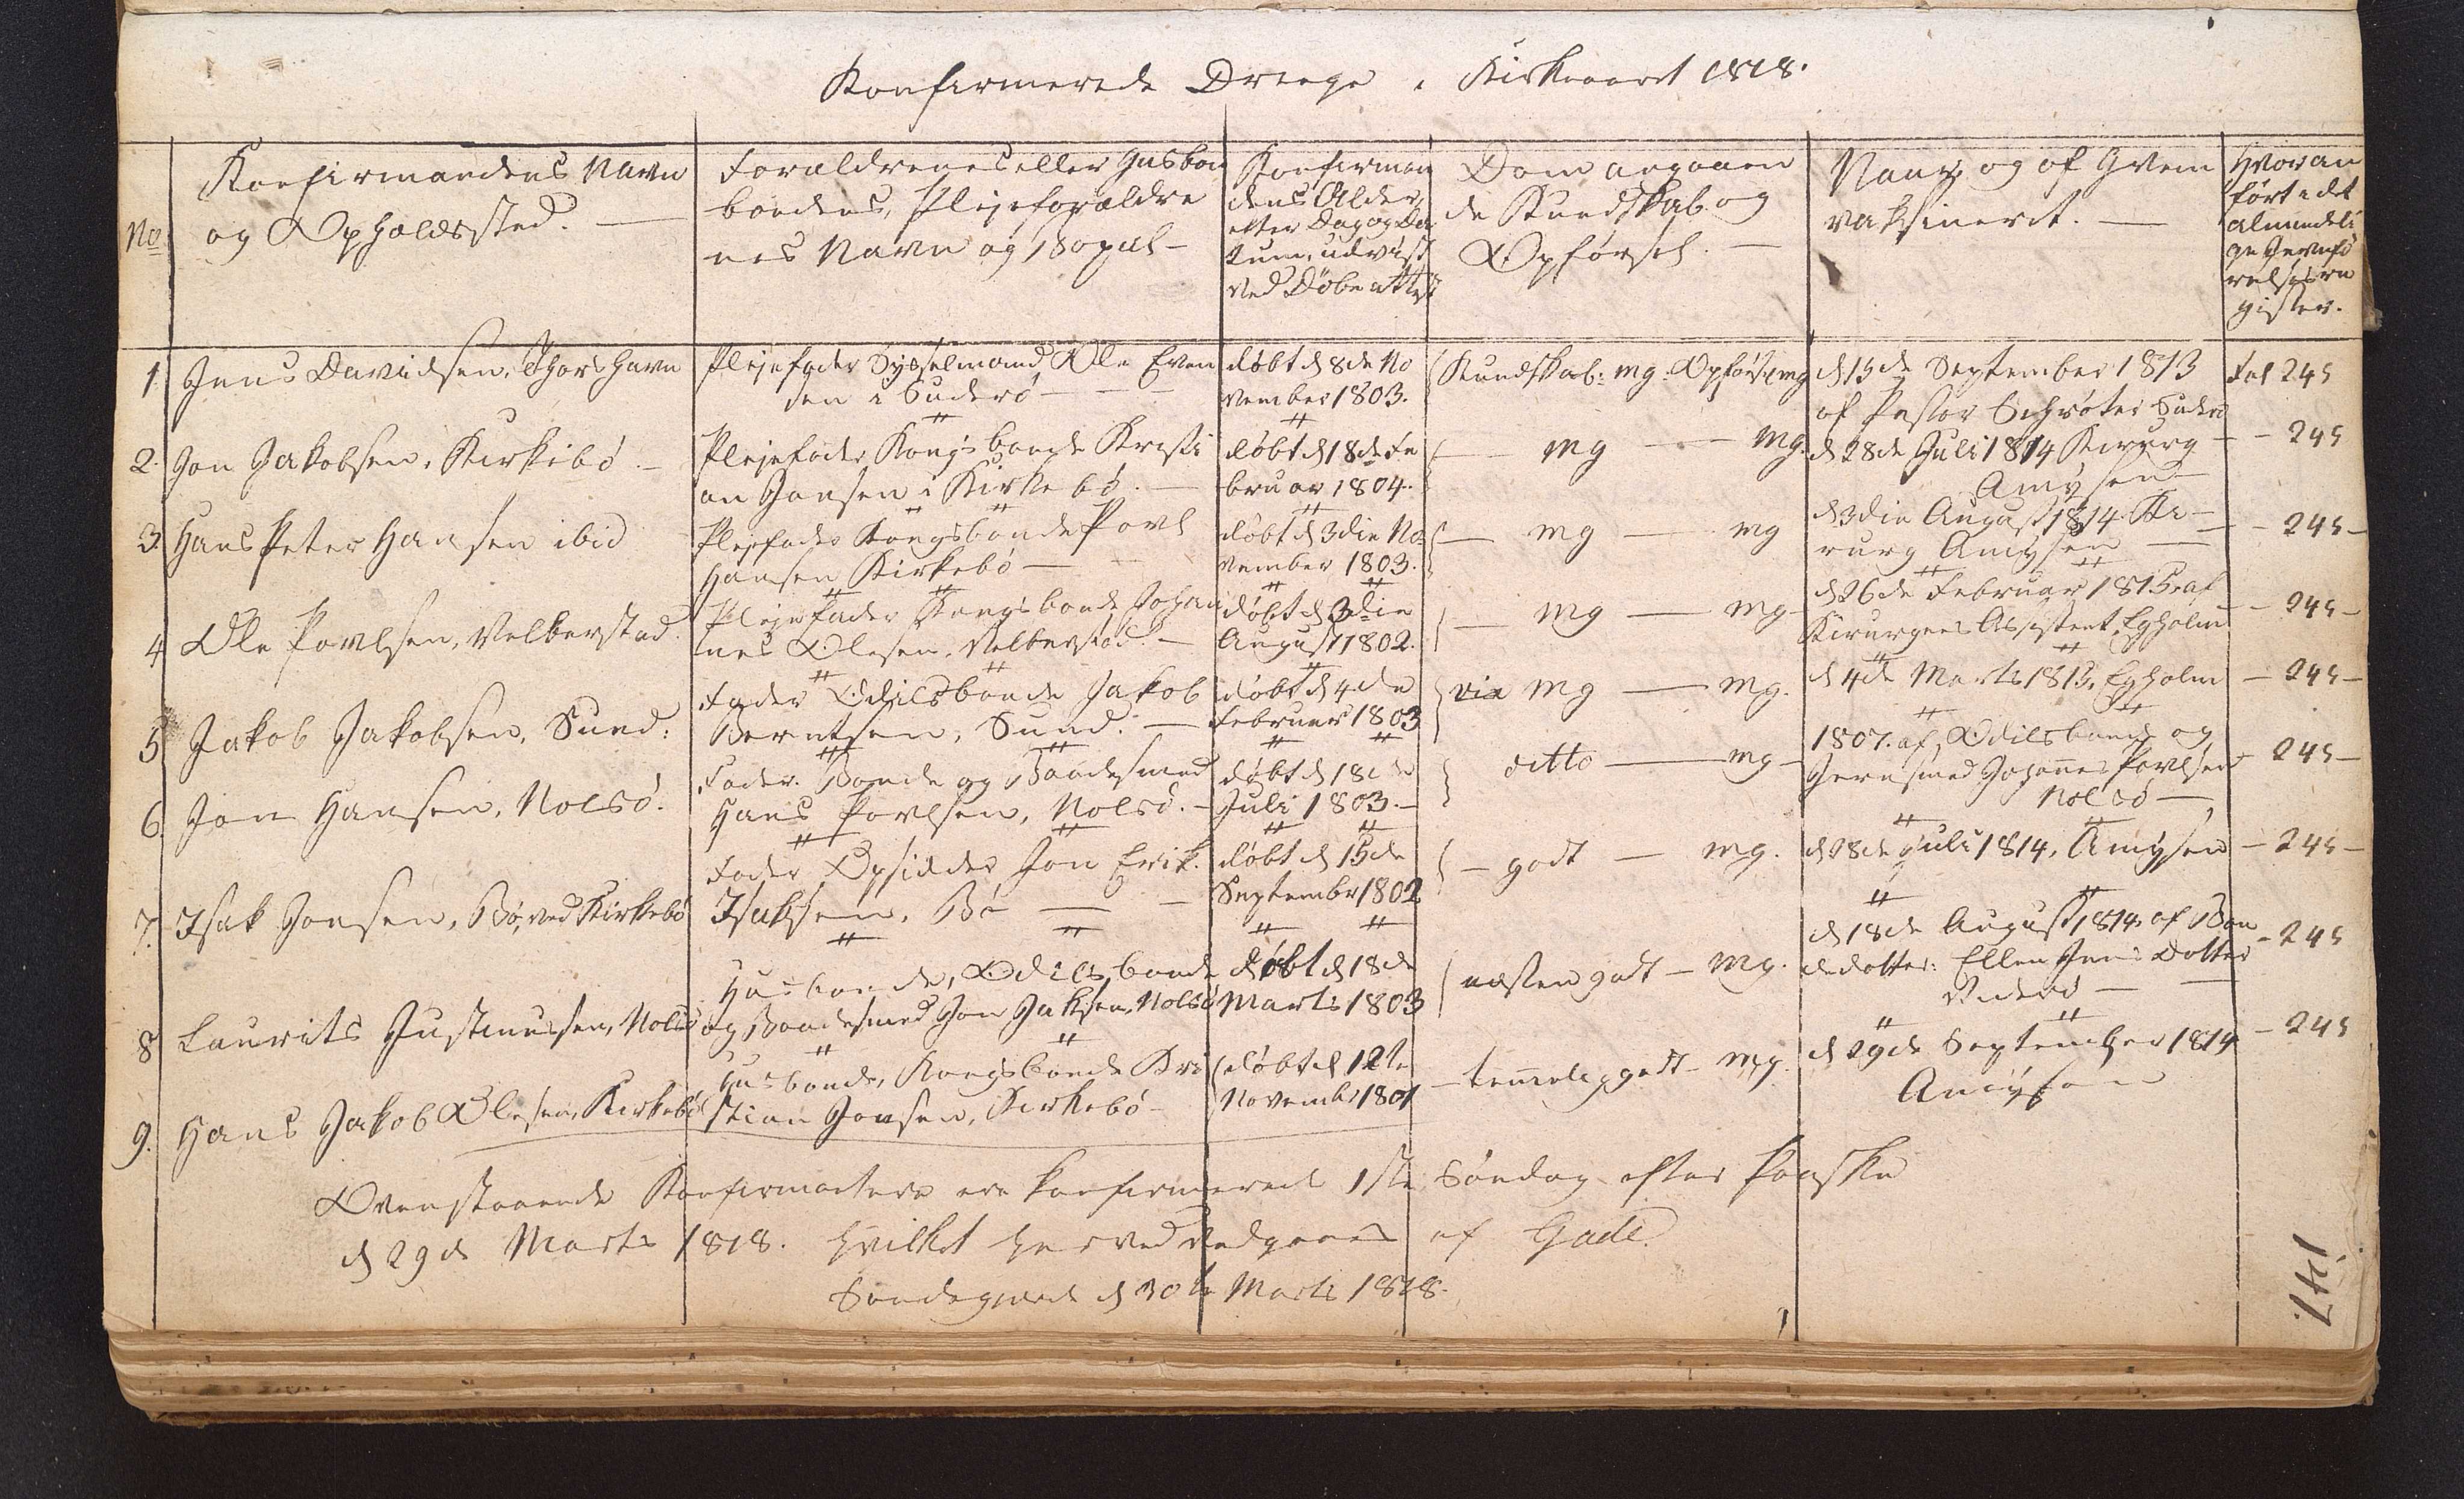 Konfirmerede Drenge i Kirkeaaret 1818.
No
Konfirmandens Navn
og Opholdssted. —
Forældrenes eller Husbon
bondens, Plejeforældre
nes Navn og Bopæl —
Konfirman
dens Alder,
efter Dag og Da
tum, udvist
ved Döbeattest
Dom angaaen
de Kundskab og
Opförsel. —
Naar og af Hvem
vaksineret. —
Hvor an
fört i det
almindeli
ge Jevnfö
relsesre
gister.
1. Jens Davidsen, Thorshavn
Plejefader Sysselmand Ole Even
sen i Suderö —
döbt d 8de No
vember 1803.
Kundskab: mg. Opförsel mg
d 15de September 1813
af Pastor Schröter Suderö
Fol 245
2. Jon Jakobsen, Kirkibö. —
Plejefader Kongsbonde Kristi
an Jonsen i Kirkebö. —
döbt d 18de Fe
bruar 1804.
— mg — mg.
d 28de Juli 1814 Kirurg
Amysen
- 245
3. Hans Peter Hansen ibid
Plejefader Kongsbonde Povl
Hansen Kirkebö —
döbt d 3die No
vember 1803.
— mg — mg
d 3die August 1814. Ki-
rurg Amysen —
- 245 -
4 Ole Povlsen, Velberstad.
Plejefader Kongsbonde Johan
nes Olesen, Velberstad. —
döbt d 3die
August 1802.
— mg — mg -
d 26de Februar 1815 af
Kirurgens Assistent, Egholm
- 245 -
5 Jakob Jakobsen, Sund:
Fader Odilsbonde Jakob
Berntsen, Sund. —
döbt d 4de
Februar 1803
via mg — mg.
d 4de Marts 1815, Egholm
- 245 -
6. Jon Hansen, Nolsö.
Fader. Bonde og Baadesmed
Hans Povlsen, Nolsö. —
döbt d 18de
Juli 1803. —
ditto — mg -
1807. af Odilsbonde og
Jernsmed Johannes Povlsen
Nolsö —
- 245 -
7. Isak Jonsen, Bö, ved Kirkebö
Fader Opsidder Jon Erik.
Isaksen, Bö —
döbt d 15de
Septembr 1802
— godt — mg.
d 28de Juli 1814, Amysen
- 245 -
8 Laurits Justinussen, Nolsö
Husbonde, Odilsbonde
og Baadesmed Jon Isaksen, Nolsö
döbt d 18de
Marts 1803
næsten godt — mg.
d 18de August 1814, af Bon
dedotter: Ellen Jens Dotter
Viderö —
- 245
9. Hans Jakob Olesen, Kirkebö
Husbonde, Kongsbonde Kri
stian Jonsen, Kirkebö —
döbt d 12te
Novembr 1801
— temelig godt — mg.
d 29de September 1814
Amysen
- 245
Ovenstaaende Konfirmantere ere konfirmerede 1ste Söndag efter Paaske
d 29de Marts 1818. hvilket herved vedgaaes af Gade.
Sandegjerde d 30te Marts 1818.
141.